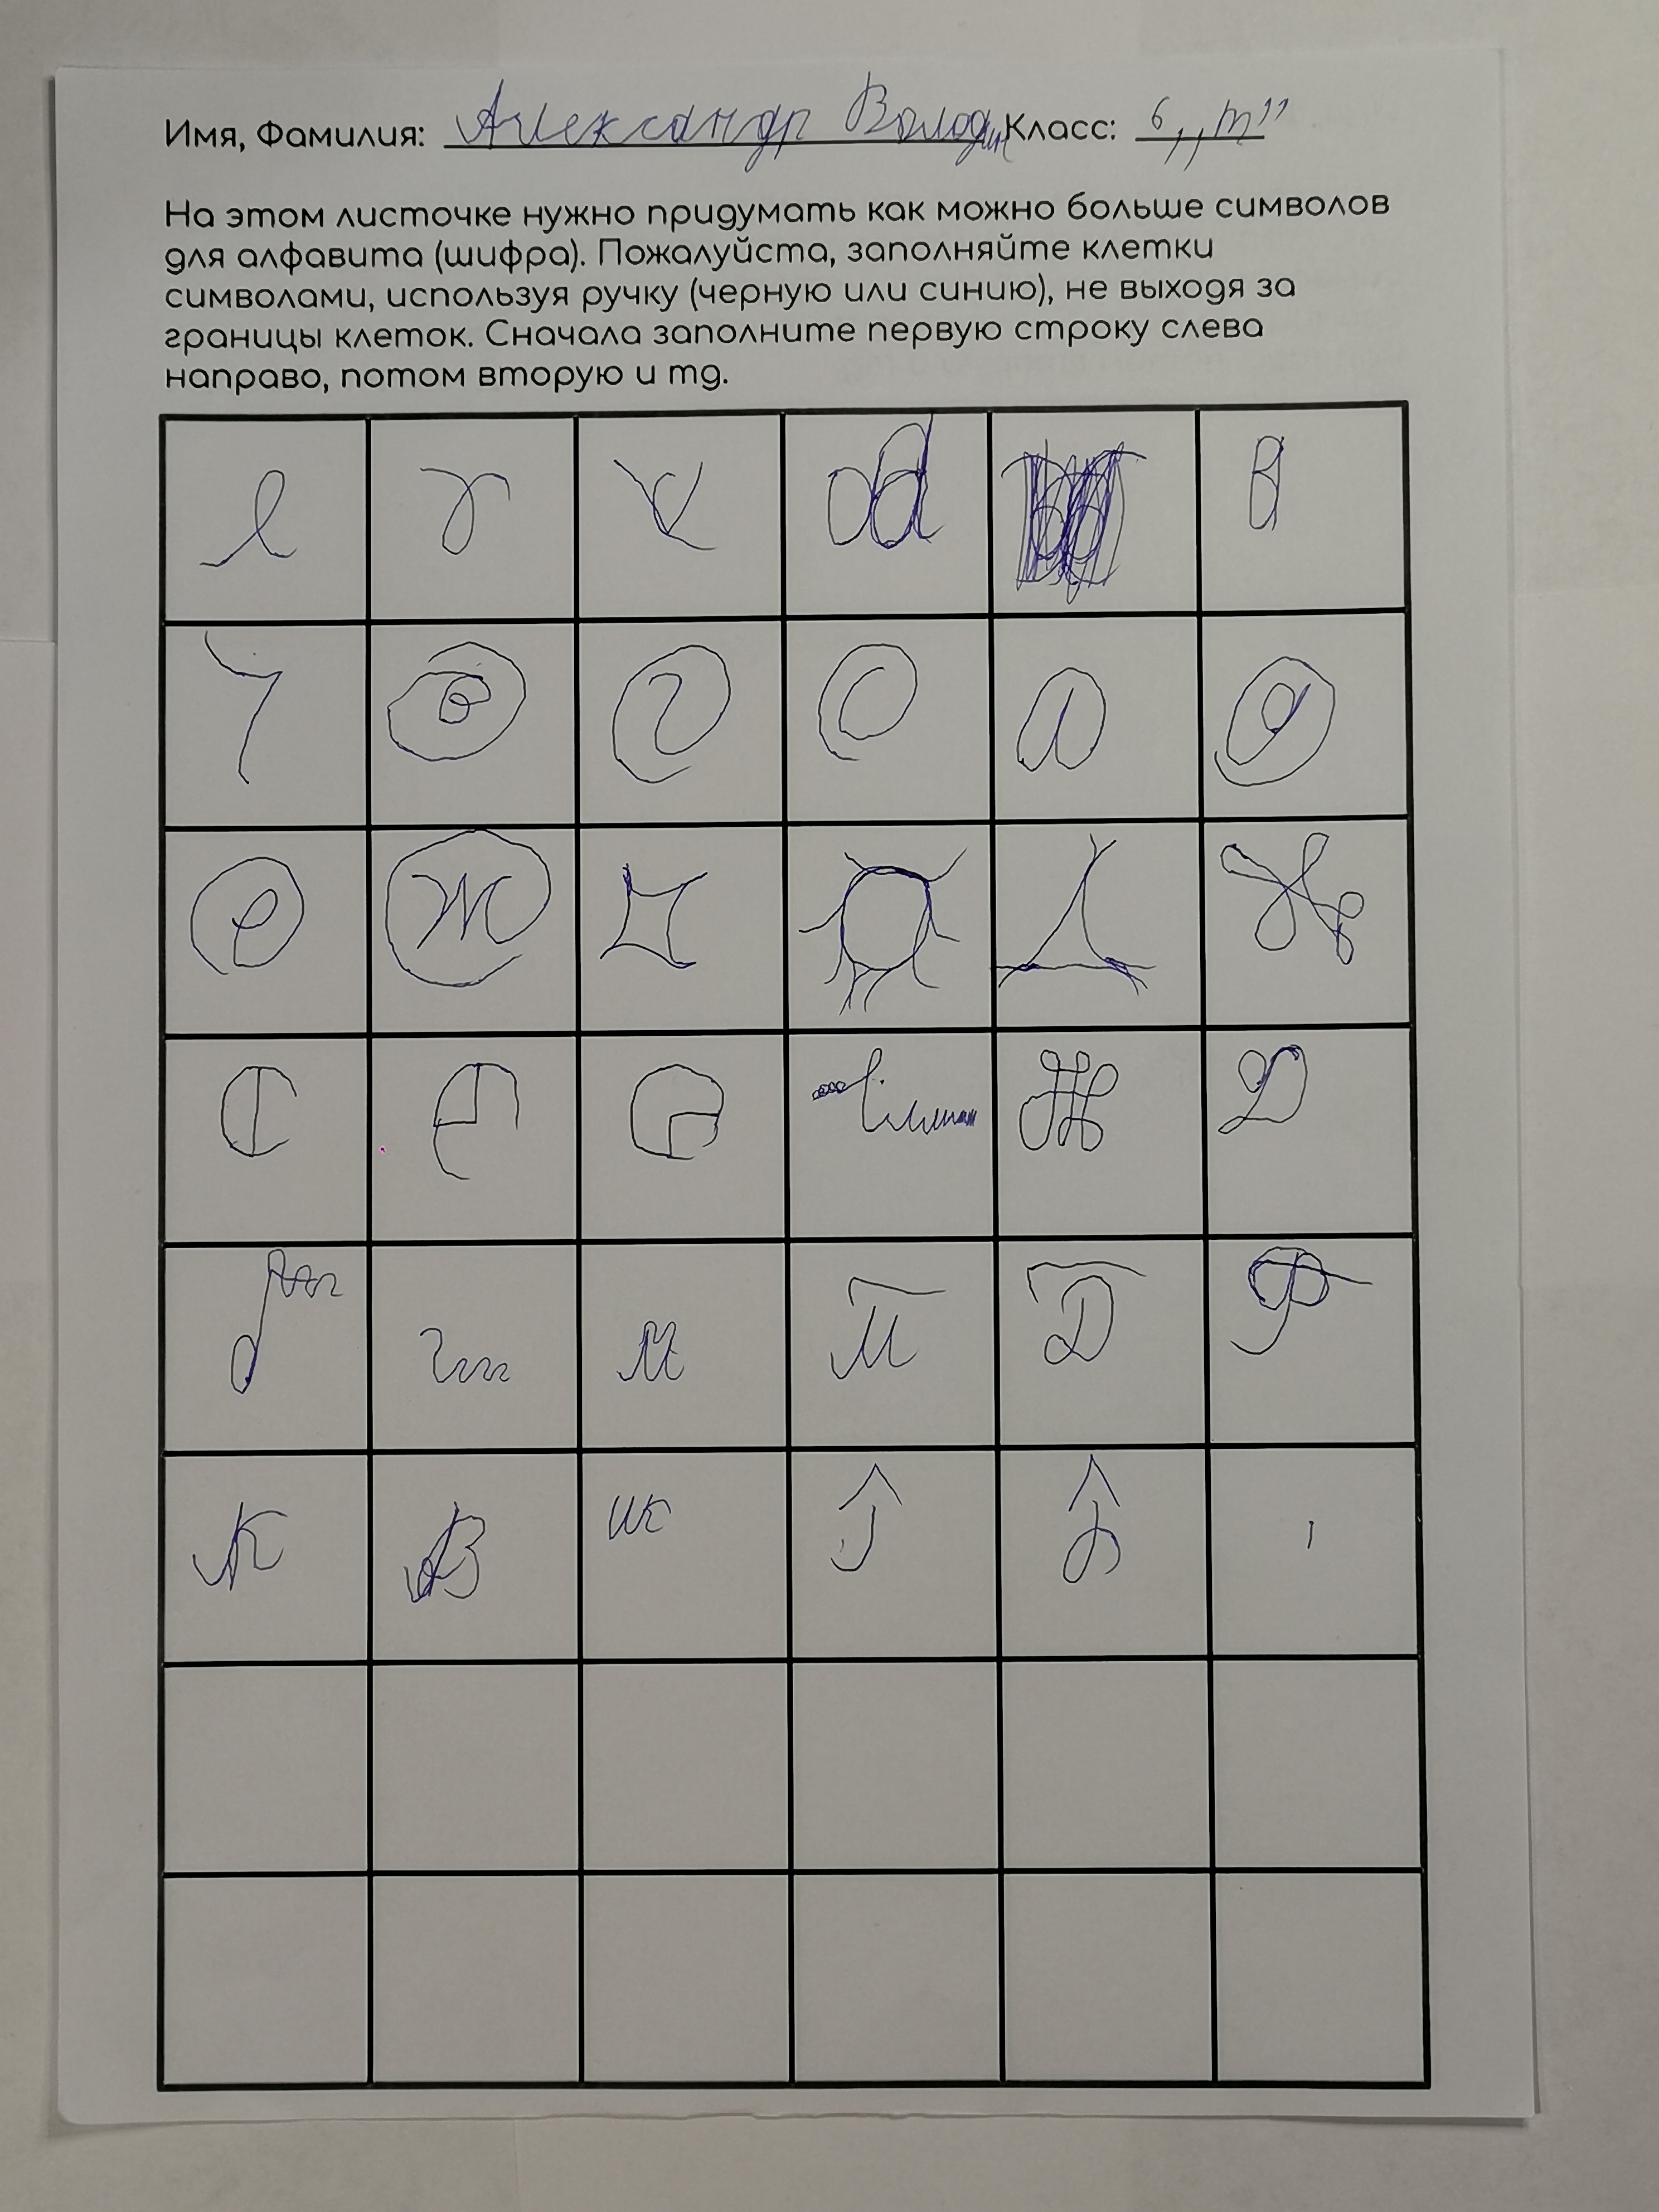 Имя, Фамилия: Александр Володин Класс: 6 „т”
На этом листочке нужно придумать как можно больше символов
для алфавита (шифра). Пожалуйста, заполняйте клетки
символами, используя ручку (черную или синию), не выходя за
границы клеток. Сначала заполните первую строку слева
направо, потом вторую и тд.